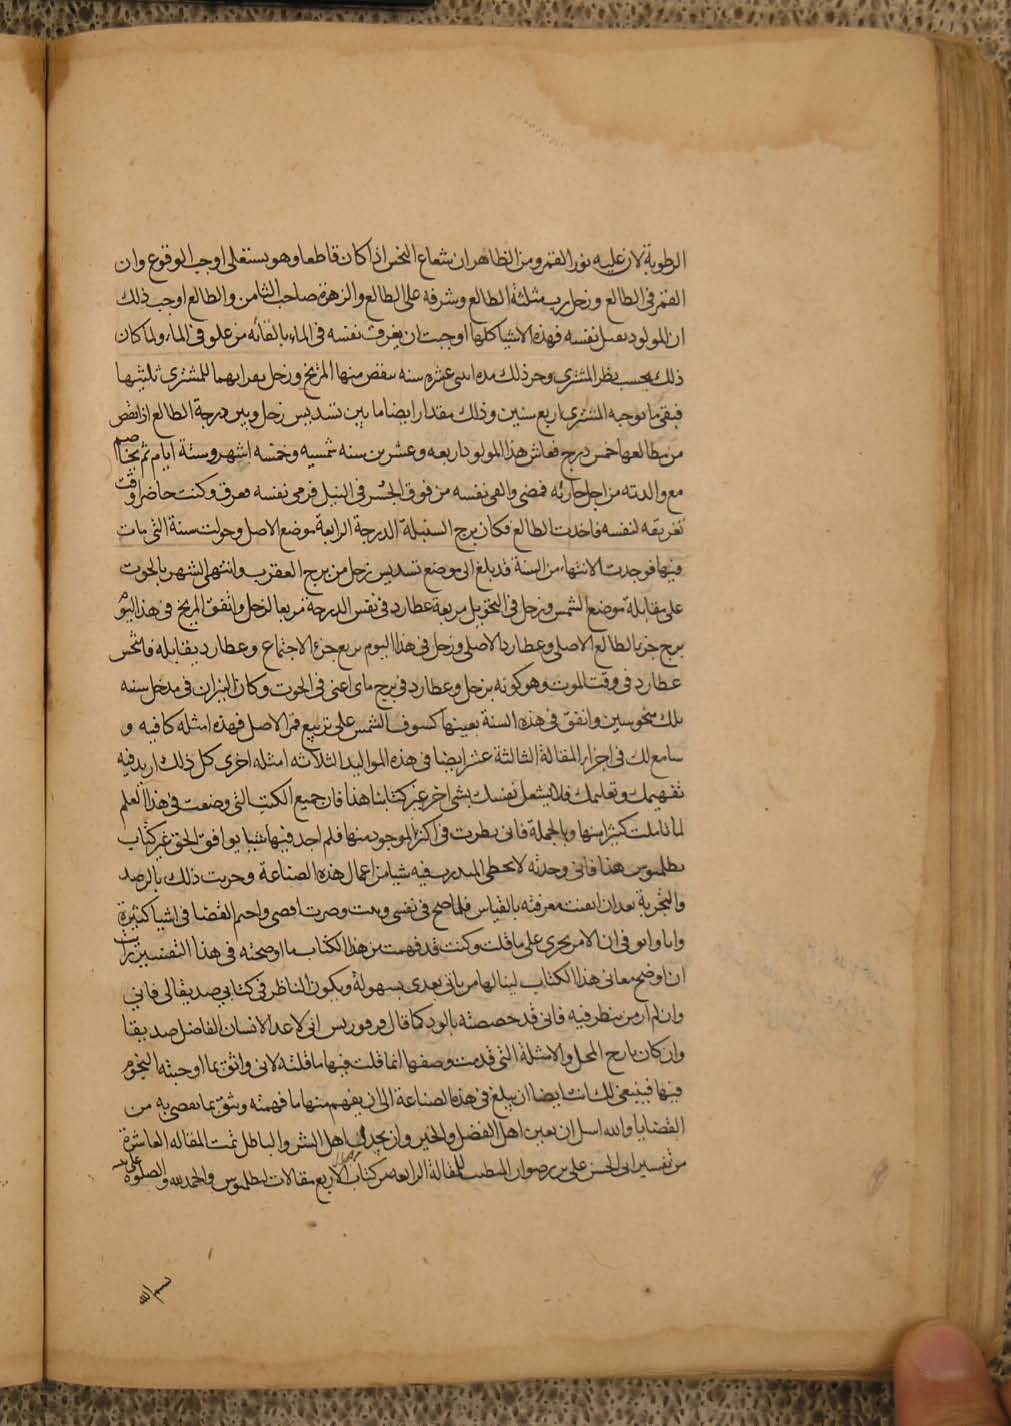 الرطوبة لان عليه نور القمر ومن الظاهر ان شعاع النحس اذا كان قاطعا وهو يستعلى اوجب الوقوع وان
القمر فى الطالع وزحل رب مثلثة الطالع وشرفه على الطالع والزهرة صاحب الثامن والطالع اوجب ذلك
ان المولود يقتل نفسه فهذه الاشيا كلها اوجبت ان يغرق نفسه فى الماء بالقائه من علو فى الماء ولما كان
ذلك بحسب نظر المشترى وحرز ذلك مده اثنى عشره سنه ينقص منها المريخ وزحل للمشترى ثلثيها
فيبقى ما يوجبه المشترى اربع سنين وذلك مقدار ايضا ما بين تسديس زحل وبين درجة الطالع اذا نقص
من مطالعها خمس درج فعاش هذا المولود اربعه وعشرين سنه شمسيه وخمسه اشهر وستة ايام ثم تخاصم
مع والدته من اجل جاريه فمضى والقى نفسه من فوق الجسر فى النيل فرمى نفسه فغرق وكنت حاضرا وقت
تغريقه لنفسه فاخذت الطالع فكان برج السنبلة الدرجة الرابعة موضع الاصل وحولت سنة التى مات
فيها فوجدت الانتهاء من السنة قد بلغ الى موضع تسديس زحل من برج العقرب وانتهى الشهر بالحوت
على مقابلة موضع الشمس وزحل فى التحويل مربعة عطارد فى نفس الدرجة مربعا لزحل واتفق المريخ فى هذا اليوم
برج حرب الطالع الاصلى وعطارد الاصلى وزحل فى هذا اليوم يربع جزء الاجتماع وعطارد يقابله فانتحس
عطارد فى وقت الموت وهو كونه بزحل وعطارد فى برج ماى اعنى فى الحوت وكان النيران فى مدخل سنه
تلك منحوسين واتفق فى هذه السنة بعينها كسوف الشمس على تربيع قمر الاصل فهذه امثله كافيه و
سامع لك فى اجزاء المقالة الثالثة عشر ايضا فى هذه المواليد الثلاثه امثله اخرى كل ذلك اريد فيه
تفهيمك وتعليمك فلا تشغل نفسك بشى اخر غير كتابنا هذا فان جميع الكتب التى وضعت فى هذا العلم
لما تاملت كثيرا منها وبالجملة فانى نظرت فى اكثر الموجود منها فلم اجد فيها شيا يوافق الحق غير كتاب
بطلميوس هذا فانى وجدته لا يخطى المتدرب فيه شيا من اعمال هذه الصناعة وجربت ذلك بالرصد
والتجربة بعد ان اتقنت معرفته بالقياس فلما صح فى نفسى وصرت اقضى واحتم القضا فى اشيا كثيرة
وانا واثق فى ان الامر يجرى على ما قلت وكنت قد فهمت من هذا الكتاب ما اوضحته فى هذا التفسير رايت
ان اوضح معانى هذا الكتاب لينالها من ياتى بعدى بسهولة ويكون الناظر فى كتابى صديقا لى فانى
وان لم ار من ينظر فيه فانى قد خصصته بالود كما قال فرفوريس انى لاعد الانسان الفاضل صديقنا
وان كان نازح المحل والامثلة التى قدمت وصفها انما قلت فيها ما قلته لانى واثق بما اوجبته النجوم
فيها فينبغى لك انت ايضا ان تبلغ فى هذه الصناعة الى ان تفهم منها ما فهمته وتثق بما تقضى به من
القضايا والله اسل ان يعين اهل الفضل والخير وان يخذل اهل الشر والباطل تمت المقاله العاشرة
من تفسير ابى الحسن على بن رضوان المتطبب للمقالة الرابعة من كتاب الاربع مقالات لبطلميوس والحمد لله والصلوة على نبيه
بسم الله